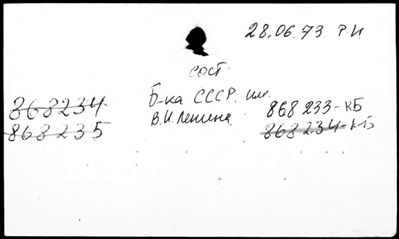 28.06.73 Р.И
сост.
868234
Б-ка СССР. им.
868 233-КБ
868235
В.И. Ленина.
868234-КБ